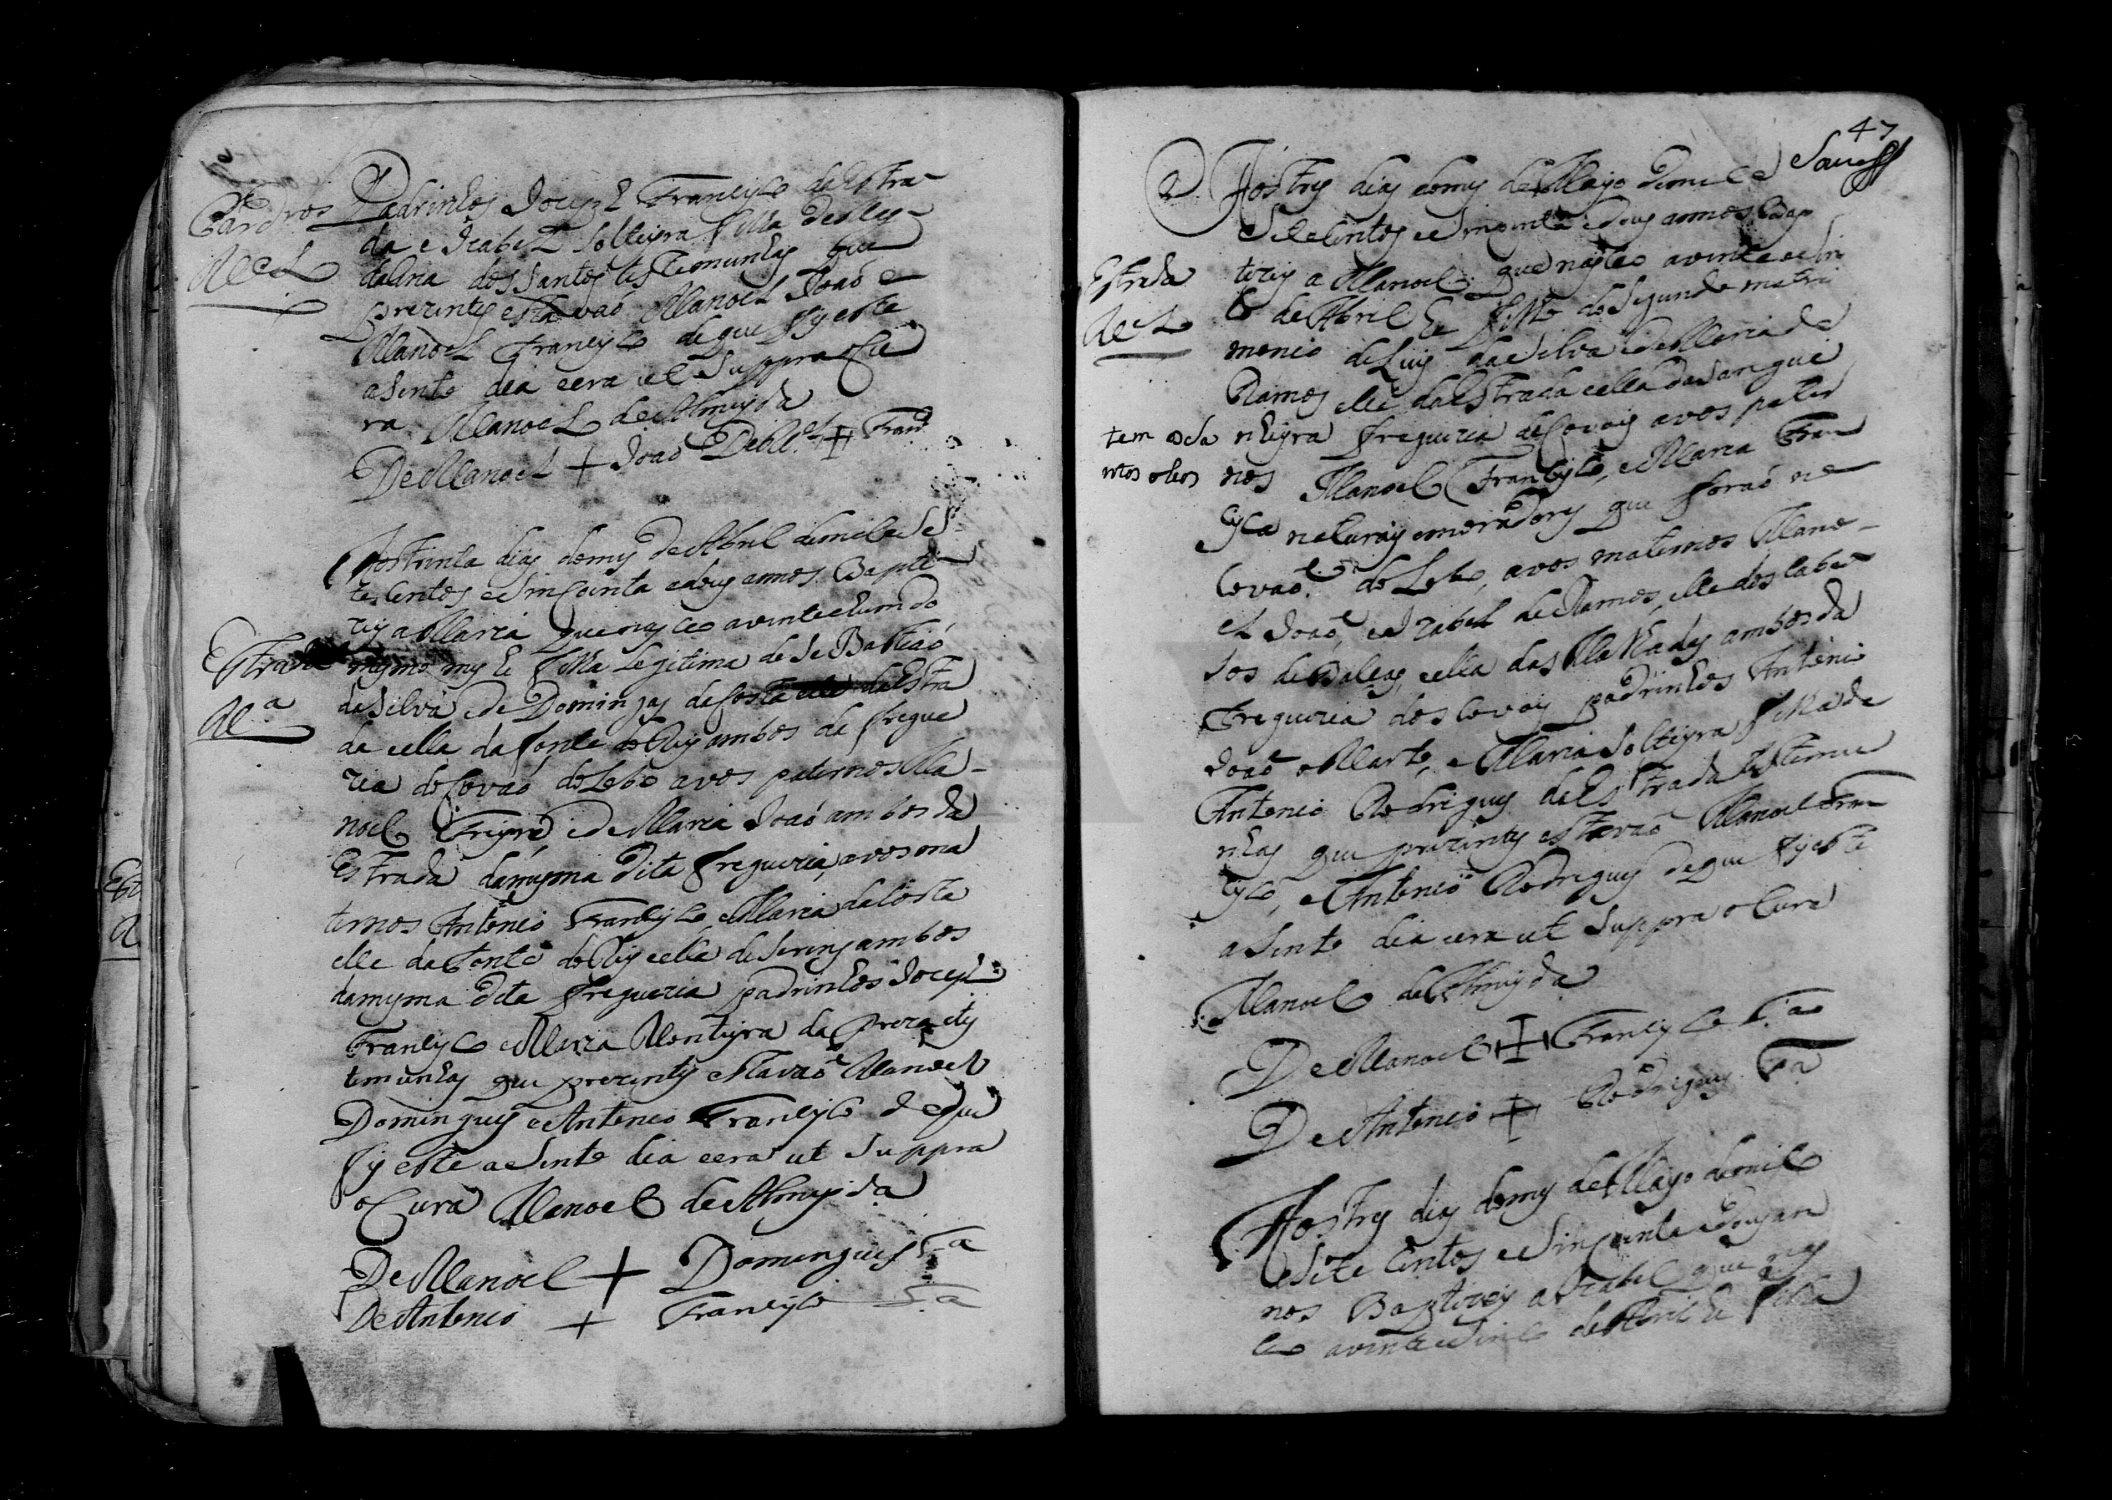 Cardros
M.el
Padrinhos Joceph Francysco da Estra-
da e Izabel solteyra filha de Mag-
dalena dos Santos testemunhas que
prezentes estavaõ Manoel Joaõ e
Manoel Francysco de que fis este
asento dia e era ut suppra o Cu
ra Manoel de Almeyda
De Manoel + Joaõ De M.el + Fran.co
Estrada
M.a
Aos trinta dias do mes de Abril de mil e se
te centos e sincoenta e dous annos Bapti
zey a Maria que nasceo a vinte e hum do
mesmo mes he filha legitima de Sebastiaõ
da Silva e de Domingas da Costa elle da Estra
da e ella da fonte do Rey ambos da fregue
zia do Covaõ do Lobo avos paternos Ma-
noel Freyre, e de Maria Joaõ ambos da
Estrada da mesma dita freguezia, avos ma
ternos Antonio Francysco e Maria da Costa
elle da Fonte do Rey e ella de ambos
da mesma dita freguezia padrinhos Joceph
Francysco e Maria Monteyra da Preza tes
temunhas que prezentes estavaõ Manoel
Domingues e Antonio Francysco de que
fis este asento dia e era ut suppra
o Cura Manoel de Almeyda
De Manoel + Domingues t.a
De Antonio + Francysco t.a
47
Estrada
M.el
tem os sa
ntos oleos
Aos tres dias do mes de Mayo de mil e
sete centos e sincoenta e dous annos Bap
tizey a Manoel que nasceo a vinte e sin
co de Abril he filho do segundo matri
monio de Luis da Silva e de Maria de
Ramos elle da Estrada e ella da Sangui
nheyra freguezia de Covoes avos pater
nos Manoel Francysco, e Maria Fran
cysca naturais e moradores que foraõ no
Covaõ do Lobo, avos maternos Mano-
el Joaõ, e Izabel de Ramos, elle dos labe
sos de Baleas e ella das Malhadas ambos da
Freguezia dos Covoes padrinhos Antonio
Joaõ o Marto, e Maria solteyra filha de
Antonio Rodrigues da Estrada testemu
nhas que prezentes estavaõ Manoel Fran
cysco, e Antonio Rodrigues de que fis este
asento dia e era ut suppra o Cura
Manoel de Almeyda
De Manoel + Francysco t.a
De Antonio + Rodrigues t.a
Aos tres dias do mes de Mayo de mil
e sete centos e sincoenta e dous an
nos Baptizey a Izabel que nas
ceo a vinte e sinco de Abril he filha